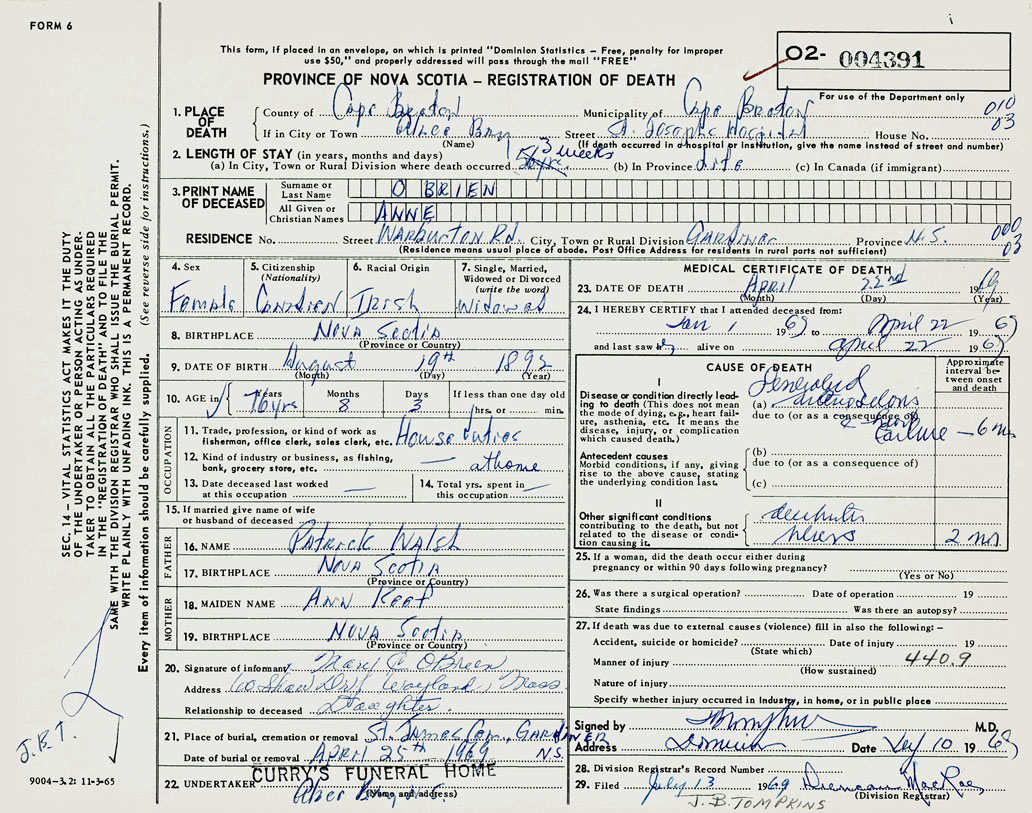 FORM 6
This form, if placed in an envelope, on which is printed "Dominion Statistics – Free, penalty for improper
use $50," and properly addressed will pass through the mail "FREE"
PROVINCE OF NOVA SCOTIA – REGISTRATION OF DEATH
02- 004391
For use of the Department only
010
03
1. PLACE OF DEATH
County of Cape Breton Municipality of Cape Breton
If in City or Town Glace Bay Street St. Josephs Hospital House No.
(Name) (If death occurred in a hospital or institution, give the name instead of street and number)
2. LENGTH OF STAY (in years, months and days) 3 weeks
(a) In City, Town or Rural Division where death occurred (b) In Province Life (c) In Canada (if immigrant)
3. PRINT NAME OF DECEASED
Surname or Last Name O BRIEN
All Given or Christian Names ANNE
RESIDENCE No. Street Warburton Rd. City, Town or Rural Division Gardiner Province N.S.
000
03
(Residence means usual place of abode. Post Office Address for residents in rural parts not sufficient)
4. Sex 5. Citizenship (Nationality) 6. Racial Origin 7. Single, Married, Widowed or Divorced (write the word)
Female Canadian Irish Widowed
8. BIRTHPLACE Nova Scotia
(Province or Country)
9. DATE OF BIRTH August 19th 1892
(Month) (Day) (Year)
10. AGE in Years Months Days If less than one day old
76 yrs 8 3 hrs. or min.
OCCUPATION
11. Trade, profession, or kind of work as fisherman, office clerk, sales clerk, etc. House duties
12. Kind of industry or business, as fishing, bank, grocery store, etc. — at home
13. Date deceased last worked at this occupation —
14. Total yrs. spent in this occupation —
15. If married give name of wife or husband of deceased
FATHER
16. NAME Patrick Walsh
17. BIRTHPLACE Nova Scotia
(Province or Country)
MOTHER
18. MAIDEN NAME Ann
19. BIRTHPLACE Nova Scotia
(Province or Country)
20. Signature of informant Mary C. O'Brien
Address 60 Shaw Dr. Wayland, Mass
Relationship to deceased Daughter.
21. Place of burial, cremation or removal St. James Cem., Gardiner
Date of burial or removal April 25th 1969 N.S.
22. UNDERTAKER CURRY'S FUNERAL HOME
Glace Bay N.S.
(Name and address)
MEDICAL CERTIFICATE OF DEATH
23. DATE OF DEATH April 22nd 1969
(Month) (Day) (Year)
24. I HEREBY CERTIFY that I attended deceased from:
Jan 1 1969 to April 22 1969
and last saw her alive on April 22 1969
CAUSE OF DEATH
Approximate interval between onset and death
I
Disease or condition directly leading to death (This does not mean the mode of dying, e.g., heart failure, asthenia, etc. It means the disease, injury, or complication which caused death.)
(a) Generalized arteriosclerosis
due to (or as a consequence of)
Failure – 6 mos
Antecedent causes
Morbid conditions, if any, giving rise to the above cause, stating the underlying condition last.
(b)
due to (or as a consequence of)
(c)
II
Other significant conditions contributing to the death, but not related to the disease or condition causing it.
decubitus ulcers 2 mos
25. If a woman, did the death occur either during pregnancy or within 90 days following pregnancy?
(Yes or No)
26. Was there a surgical operation? Date of operation 19
State findings Was there an autopsy?
27. If death was due to external causes (violence) fill in also the following: –
Accident, suicide or homicide? Date of injury 19
(State which)
Manner of injury 440.9
(How sustained)
Nature of injury
Specify whether injury occurred in Industry, in home, or in public place
Signed by M.D.
Address Dominion Date July 10 1969
28. Division Registrar's Record Number
29. Filed July 13 1969 Duncan MacRae
(Division Registrar)
J.B. TOMPKINS
SEC. 14 – VITAL STATISTICS ACT MAKES IT THE DUTY
OF THE UNDERTAKER OR PERSON ACTING AS UNDER-
TAKER TO OBTAIN ALL THE PARTICULARS REQUIRED
IN THE "REGISTRATION OF DEATH" AND TO FILE THE
SAME WITH THE DIVISION REGISTRAR WHO SHALL ISSUE THE BURIAL PERMIT.
WRITE PLAINLY WITH UNFADING INK. THIS IS A PERMANENT RECORD.
Every item of information should be carefully supplied. (See reverse side for instructions.)
J.B.T.
9004-3.2: 11-3-65